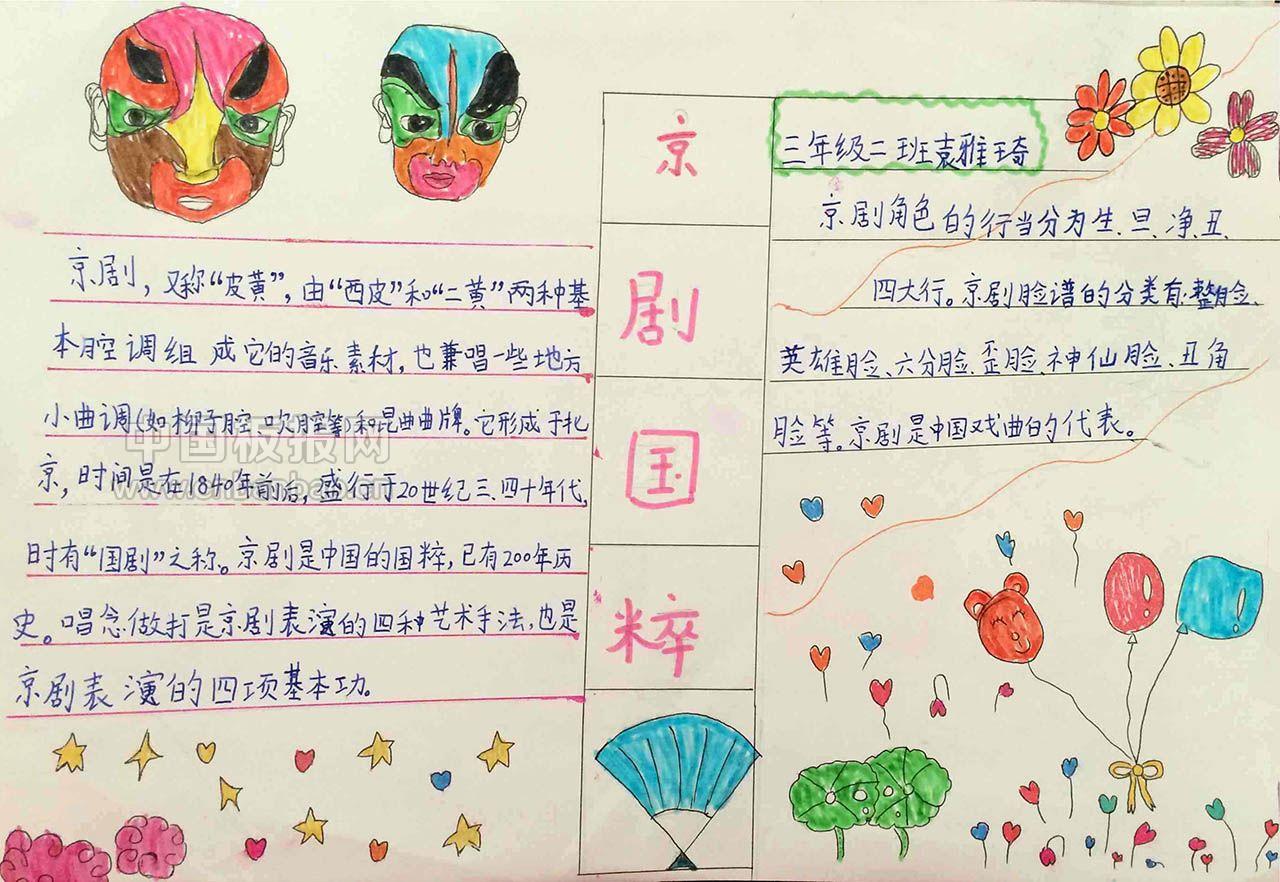 京剧，又称“皮黄”，由“西皮”和“二黄”两种基
本腔调组成它的音乐素材，也兼唱一些地方
小曲调(如柳子腔 吹腔等)和昆曲曲牌。它形成于北
京，时间是在1840年前后，盛行于20世纪三.四十年代，
时有“国剧”之称。京剧是中国的国粹，已有200年历
史。唱念做打是京剧表演的四种艺术手法，也是
京剧表演的四项基本功。
京
剧
国
粹
三年级二班袁雅琦
京剧角色的行当分为生、旦、净、丑、
四大行。京剧脸谱的分类有:整脸、
英雄脸、六分脸、歪脸、神仙脸、丑角
脸等。京剧是中国戏曲的代表。
中国板报网